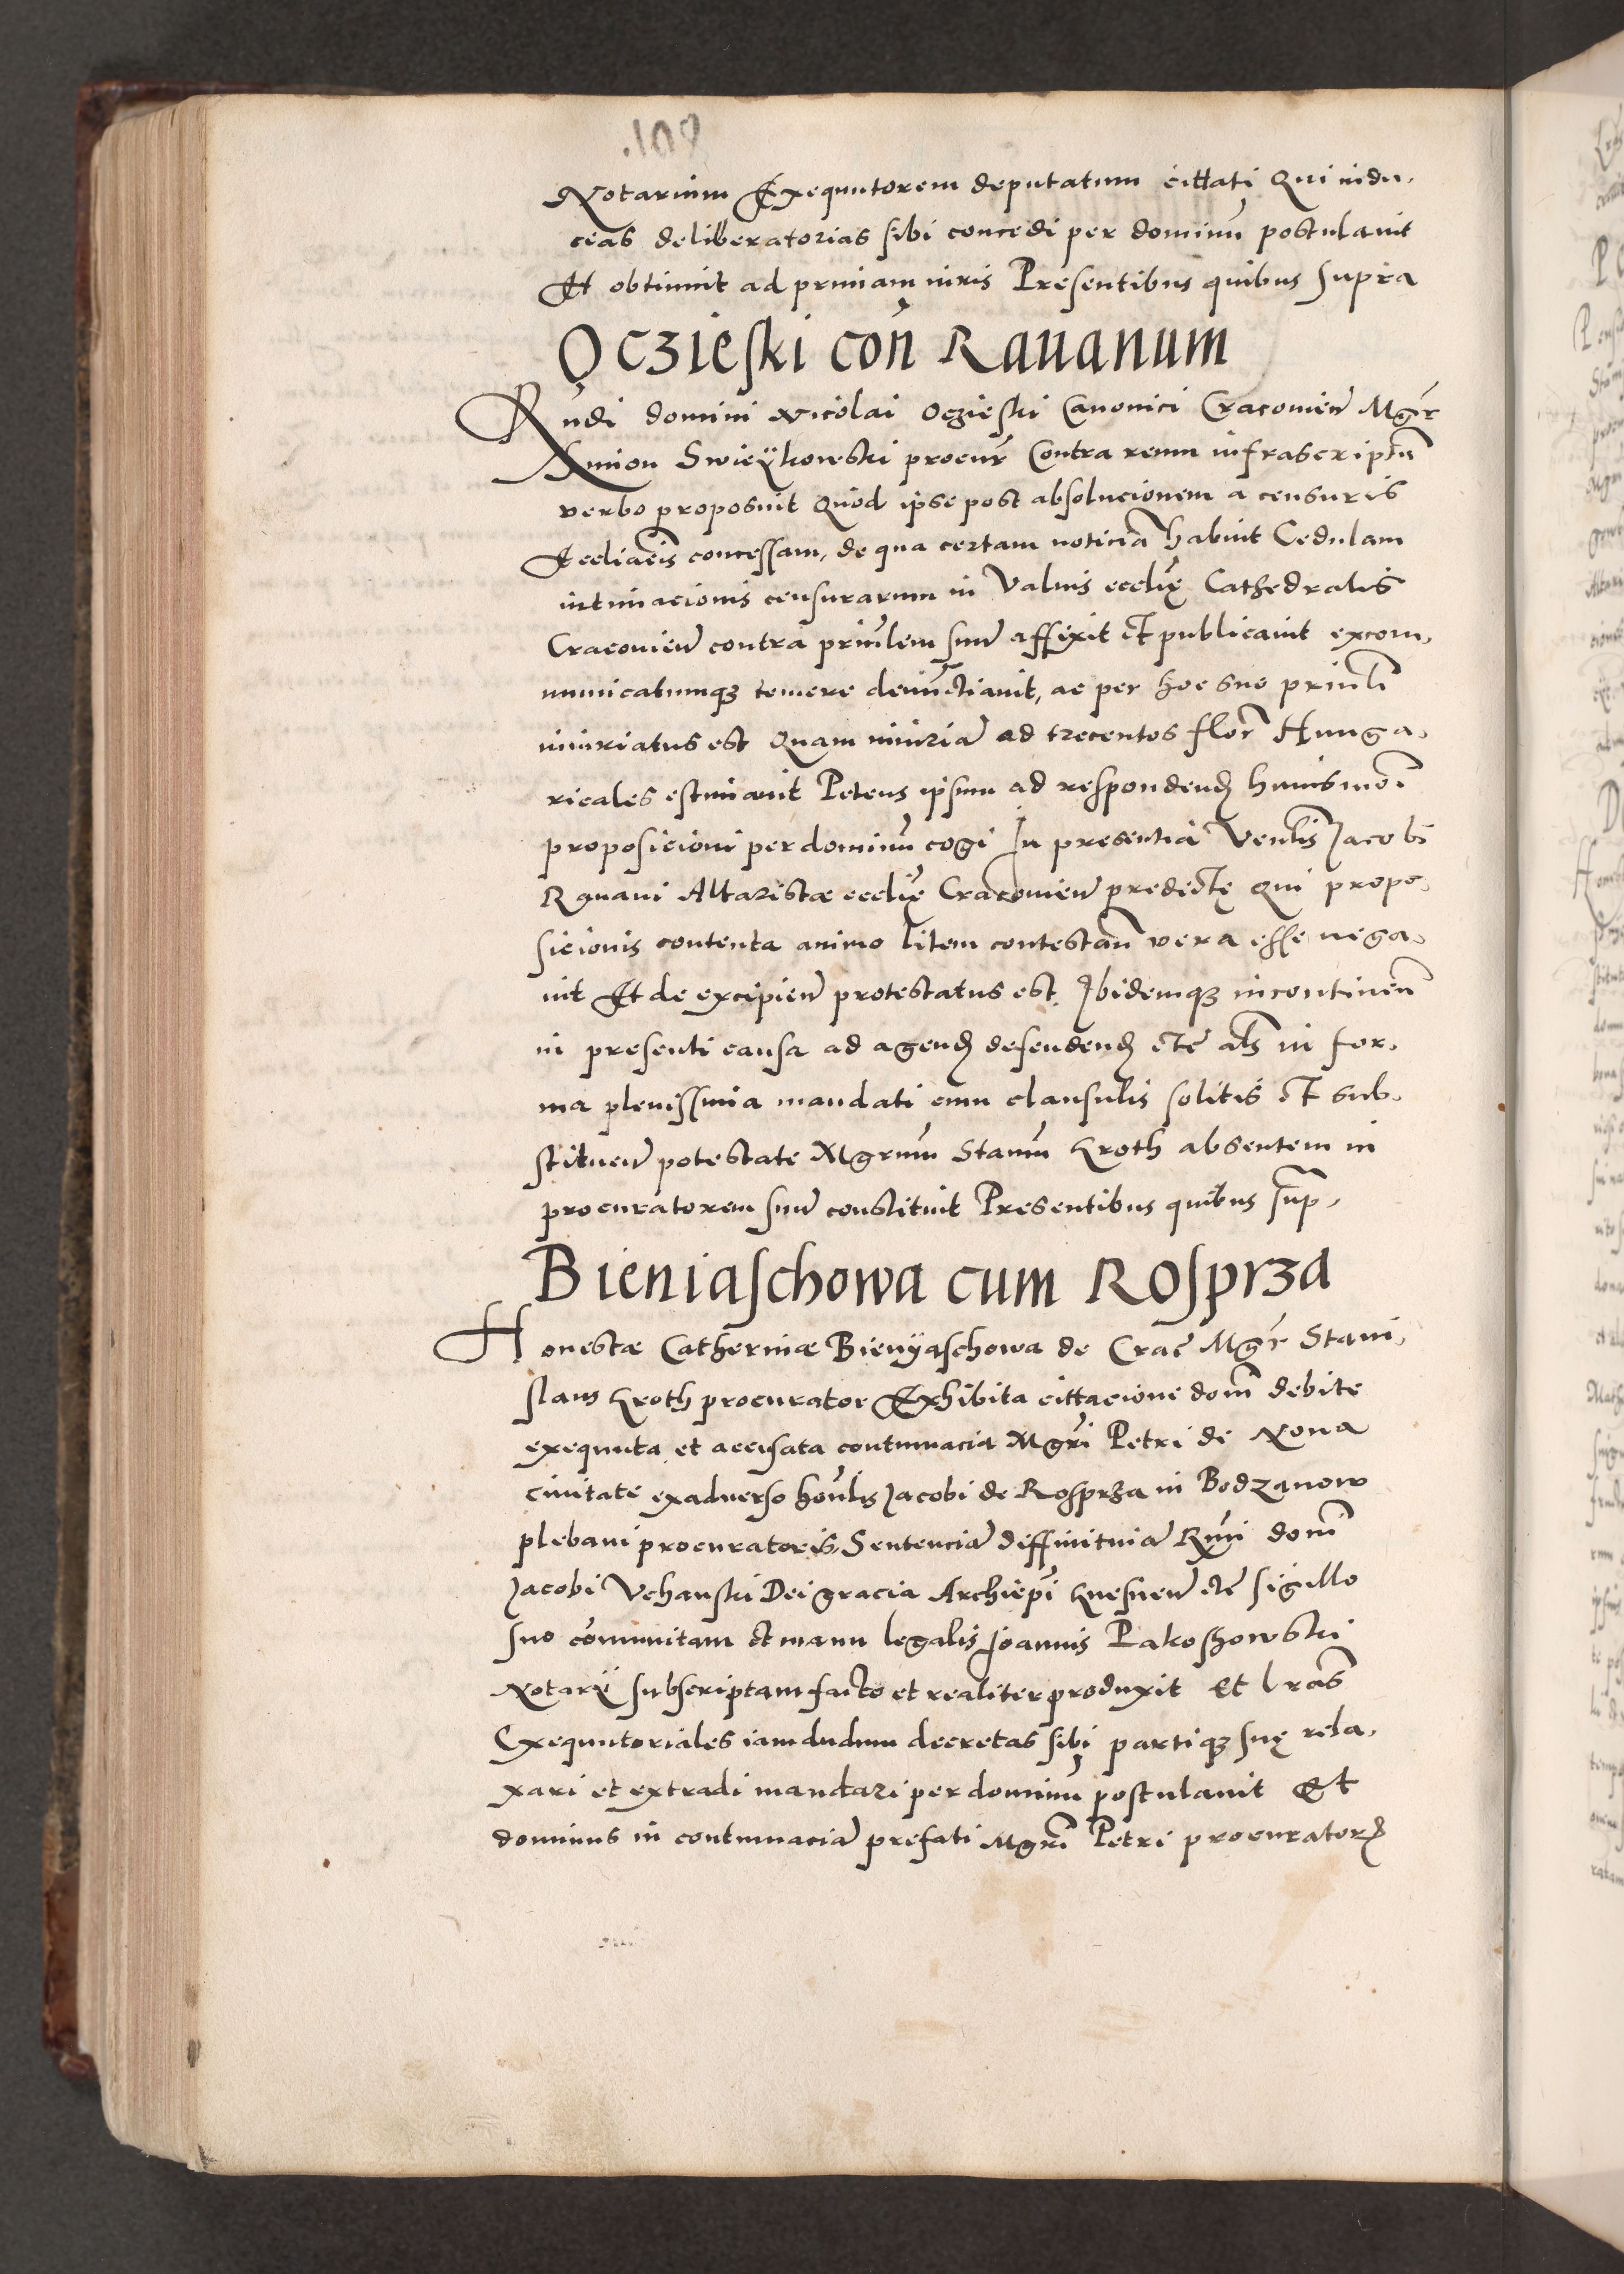 Notarium Exequutorem deputatum cittati Qui indu,
cias deliberatorias sibi concedi per dominū postulavit
Et obtinuit ad primam iuris Presentibus quibus supra
Oczieski con̄ Rauanum
Rn̄di domini Nicolai Oczieski Canonici Cracovien̄ Mgr̄
Simon Swieÿkowski procur̄ Contra reum infrascriptū
verbo proposuit Quod ipse post absolucionem a censuris
Eccliacis concessam, de qua certam noticiā habuit Cedulam
intimacionis censurarum in Valuis eccliȩ Cathedralis
Cracovien̄ contra prin̄lem suū affixit et publicauit excom,
municatumqȝ temere denūctiauit, ac per hoc suo prin̄li
iniuriatus est Quam iniuriā ad trecentos flor̄ Hunga,
ricales estimauit Petens ipsum ad respondenđ huiusmōi
proposicioni per dominū cogi In presentia Ven̄lis Jacobi
Rauani Altaristæ eccliȩ Cracovien̄ predictȩ Qui propo,
sicionis contenta animo litem contestan̄ vera esse nega,
uit Et de excipien̄ protestatus est. Ibidemqȝ incontinen̄
in presenti causa ad agenđ defendenđ etc̄ al̄s in for,
ma plenissima mandati cum clausulis solitis et sub,
stituen̄ potestate Mgrum̄ Stanū Kroth absentem in
procuratorem suū constituit Presentibus quibus sup̄,
Bieniaschowa cum Rosprza
Honestæ Catherinæ Bienÿaschowa de Crac̄ Mgr̄ Stani,
slaus Kroth procurator Exhibita cittacione dom̄ debite
exequuta et accusata contumacia Mgr̄i Petri de Noua
ciuitate exaduerso hon̄lis Jacobi de Rosprza in Bodzanow
plebani procuratoris, Sentenciā diffinitiuā Rm̄i dom̄
Jacobi Vchanski Dei gracia Archiep̄i Gnesnen̄ etc̄ sigillo
suo com̄unitam et manu legalis Joannis Pakoszowski
Notarÿ subscriptam facto et realiter produxit Et lr̄as
Exequutoriales iamdudum decretas sibi partiqȝ suȩ rela,
xari et extradi mandari per dominū postulauit Et
dominus in contumaciā prefati Mgri Petri procurator̄